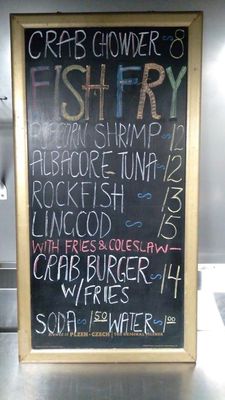 CRAB CHOWDER ~ 8
FISH FRY
POPCORN SHRIMP ~ 12
ALBACORE TUNA ~ 12
ROCKFISH ~ 13
LINGCOD ~ 15
WITH FRIES & COLESLAW —
CRAB BURGER ~ 14
W/ FRIES
SODA ~ 1.50 WATER ~ 1.00
PLZEN - CZECH | THE ORIGINAL PILSNER